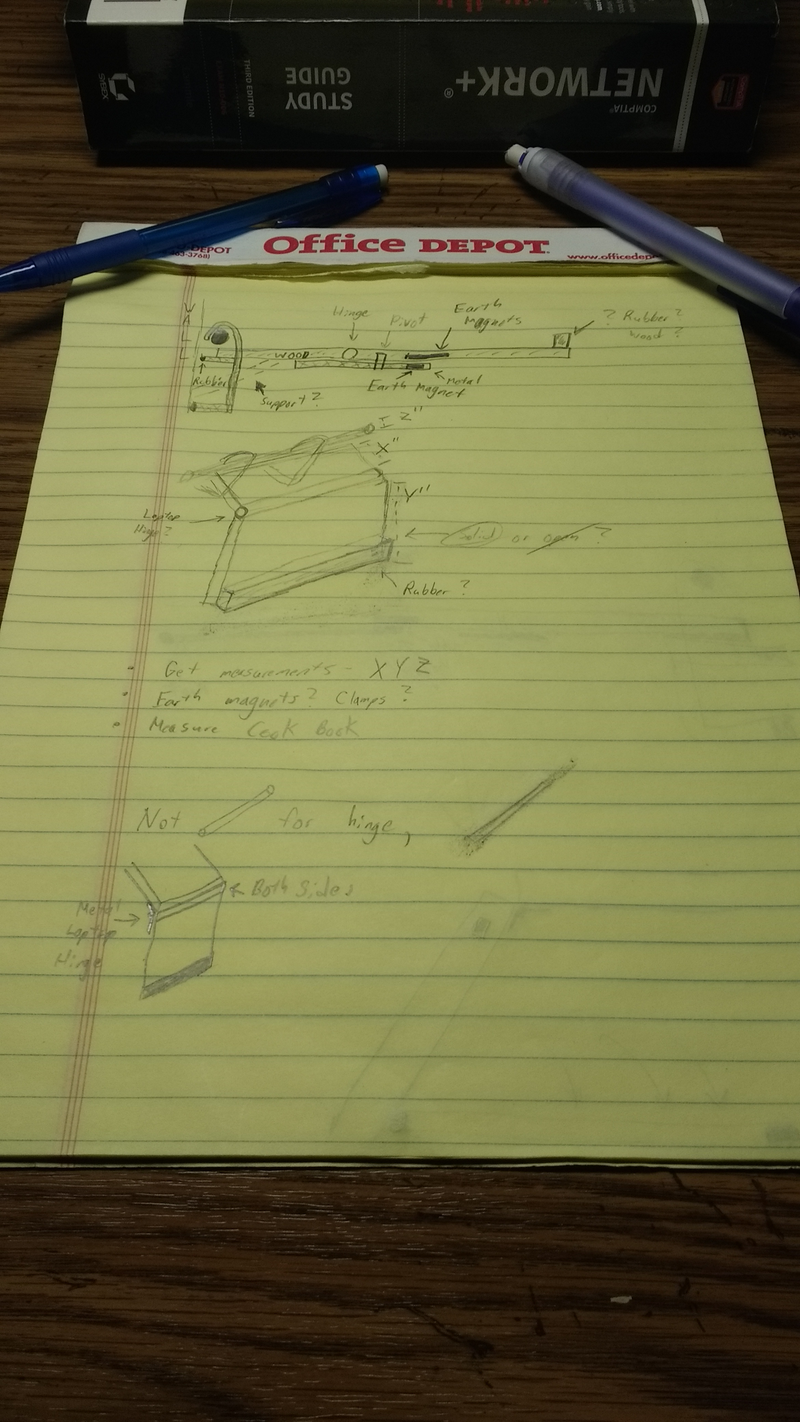 COMPTIA®
NETWORK+®
STUDY
GUIDE
THIRD EDITION
SYBEX
DEPOT
Office DEPOT
www.officedepo
63-3768)
WALL
Hinge
Pivot
Earth
Magnets
? Rubber?
Wood?
WOOD
Rubber
Support?
Earth Magnet
Metal
Z"
X"
Y"
Laptop
Hinge?
Solid or open ?
Rubber ?
• Get measurements - X Y Z
• Earth magnets? Clamps?
• Measure Cook Book
Not for hinge,
Both Sides
Metal
Laptop
Hinge